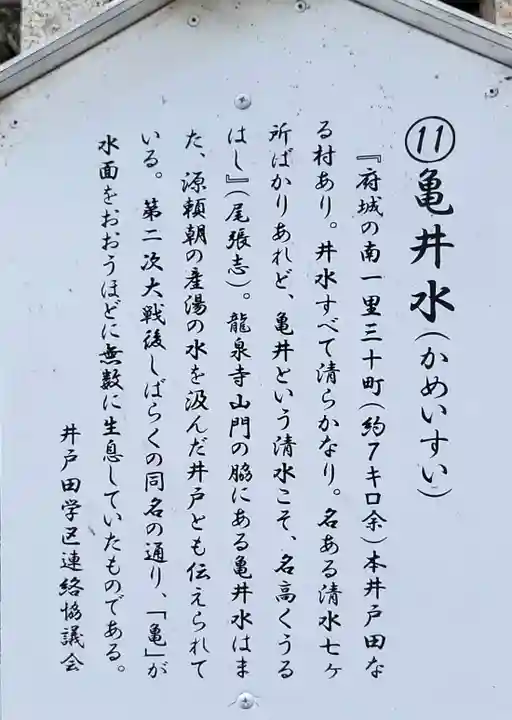 ⑪亀井水(かめいすい)
『府城の南一里三十町(約7キロ余)本井戸田な
る村あり。井水すべて清らかなり。名ある清水七ヶ
所ばかりあれど、亀井という清水こそ、名高くうる
はし』(尾張志)。龍泉寺山門の脇にある亀井水はま
た、源頼朝の産湯の水を汲んだ井戸とも伝えられて
いる。第二次大戦後しばらくの同名の通り、「亀」が
水面をおおうほどに無数に生息していたものである。
井戸田学区連絡協議会